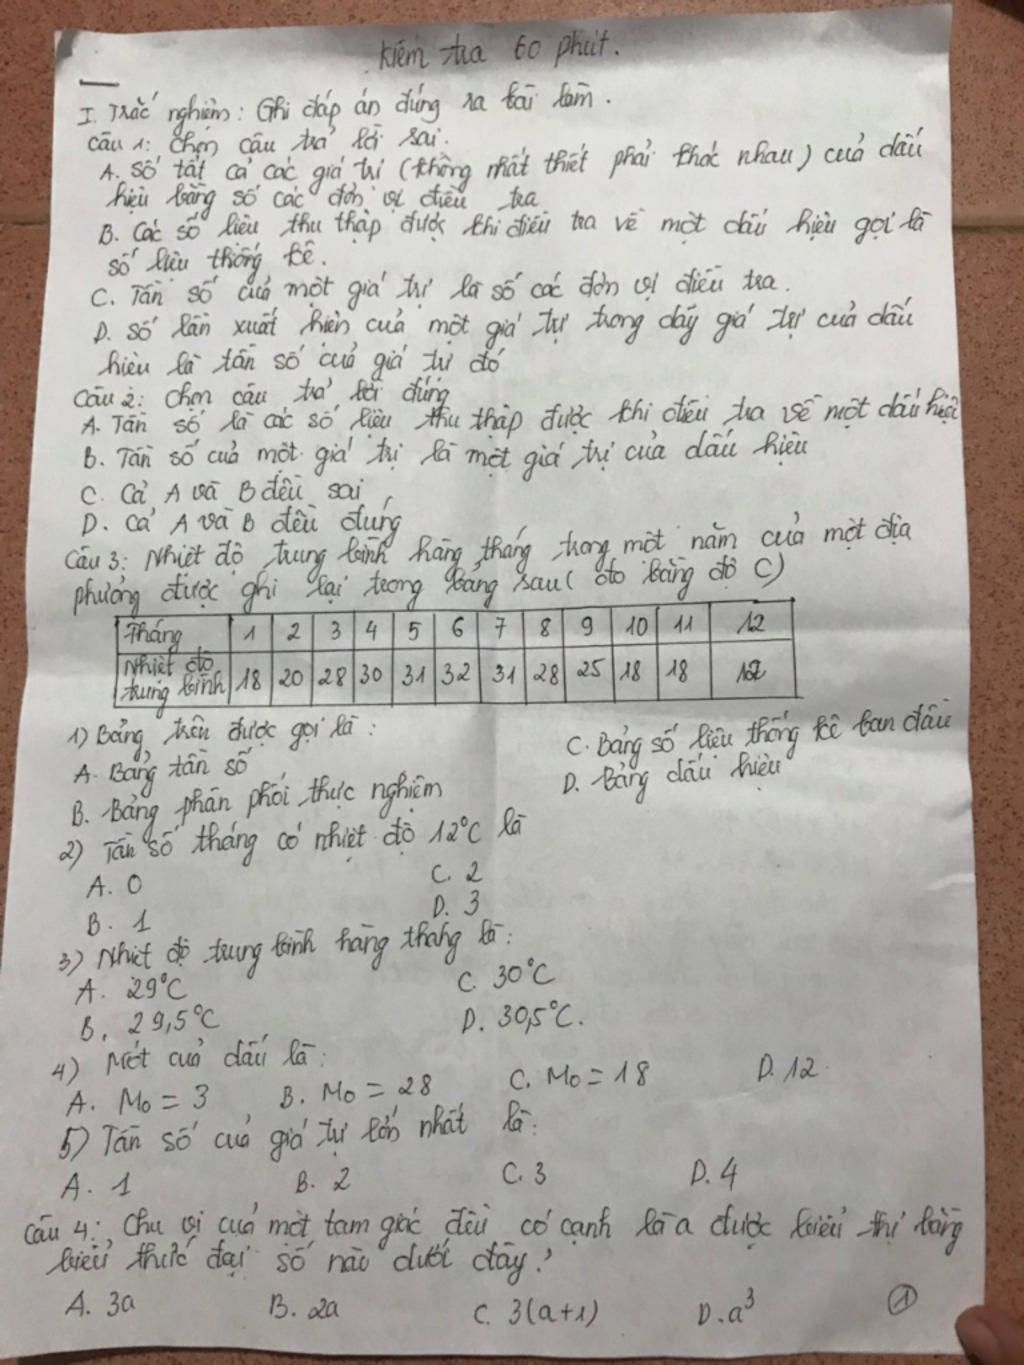 Kiểm tra 60 phút.
I. Trắc nghiệm: Ghi đáp án đúng ra bài làm.
Câu 1: Chọn câu trả lời sai.
A. Số tất cả các giá trị (không nhất thiết phải khác nhau) của dấu
hiệu bằng số các đơn vị điều tra
B. Các số liệu thu thập được khi điều tra về một dấu hiệu gọi là
số liệu thống kê.
C. Tần số của một giá trị là số các đơn vị điều tra.
D. Số lần xuất hiện của một giá trị trong dãy giá trị của dấu
hiệu là tần số của giá trị đó
Câu 2: Chọn câu trả lời đúng
A. Tần số là các số liệu thu thập được khi điều tra về một dấu hiệu
B. Tần số của một giá trị là một giá trị của dấu hiệu
C. Cả A và B đều sai
D. Cả A và B đều đúng
Câu 3: Nhiệt độ trung bình hàng tháng trong một năm của một địa
phương được ghi lại trong bảng sau (đo bằng độ C)
Tháng 1 2 3 4 5 6 7 8 9 10 11 12
Nhiệt độ
trung bình 18 20 28 30 31 32 31 28 25 18 18 12
1) Bảng trên được gọi là:
A. Bảng tần số C. Bảng số liệu thống kê ban đầu
B. Bảng phân phối thực nghiệm D. Bảng dấu hiệu
2) Tần số tháng có nhiệt độ 12°C là
A. 0 C. 2
B. 1 D. 3
3) Nhiệt độ trung bình hàng tháng là:
A. 29°C C. 30°C
B. 29,5°C D. 30,5°C.
4) Mốt của dấu là:
A. M₀ = 3 B. M₀ = 28 C. M₀ = 18 D. 12
5) Tần số của giá trị lớn nhất là:
A. 1 B. 2 C. 3 D. 4
Câu 4: Chu vi của một tam giác đều có cạnh là a được biểu thị bằng
biểu thức đại số nào dưới đây?
A. 3a B. 2a C. 3(a+1) D. a³
1